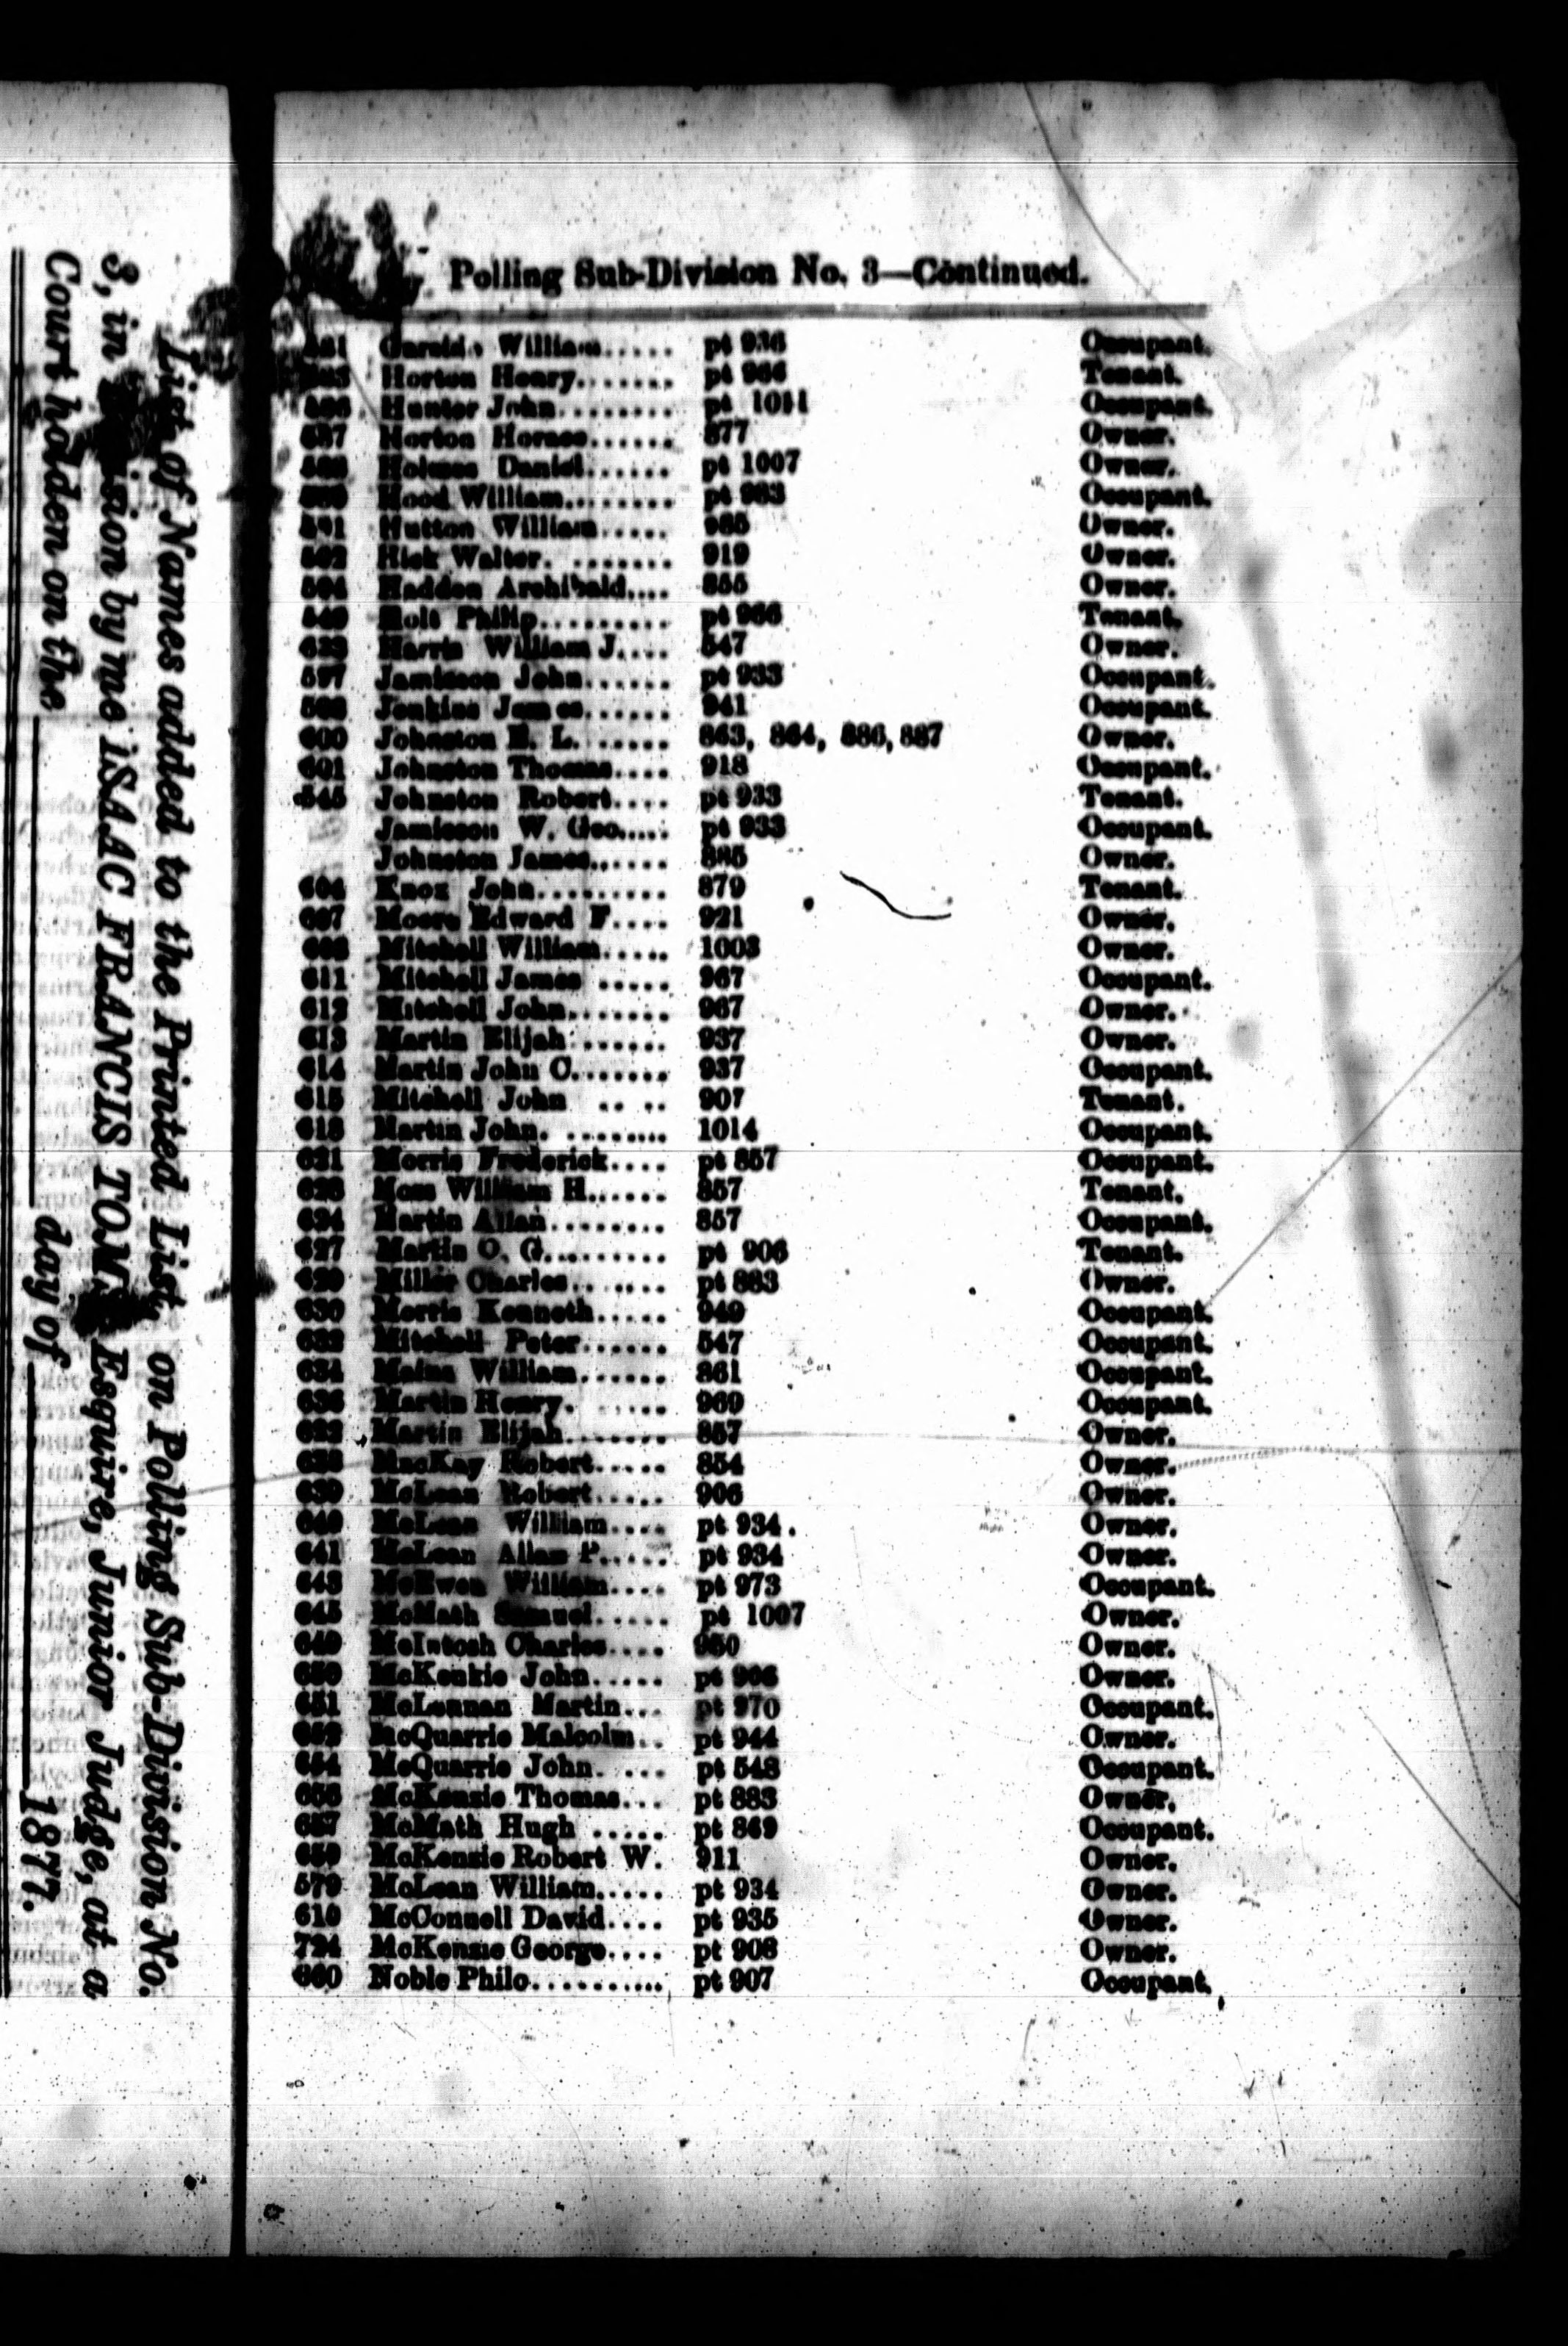 List of Names added to the Printed List, on Polling Sub-Division No.
3, in by me ISAAC FRANCIS TOMS Esquire, Junior Judge, at a
Court holden on the day of 1877.
Polling Sub-Division No. 3—Continued.
William..... pt 936 Occupant.
Horton Henry....... pt 966 Tenant.
Hunter John........ pt 1011 Occupant.
587 Horton Horace...... 877 Owner.
Holmes Daniel...... pt 1007 Owner.
Hood William........ pt 983 Occupant.
591 Hutton William..... 985 Owner.
592 Hick Walter. ....... 919 Owner.
594 Haddon Archibald.... 855 Owner.
549 Holt Philip......... pt 966 Tenant.
623 Harris William J.... 547 Owner.
597 Jamieson John...... pt 933 Occupant.
598 Jenkins James...... 941 Occupant.
600 Johnston E. L. ...... 863, 864, 886, 887 Owner.
601 Johnston Thomas.... 918 Occupant.
545 Johnston Robert.... pt 933 Tenant.
Jamieson W. Geo..... pt 933 Occupant.
Johnston James...... 885 Owner.
604 Knox John......... 879 Tenant.
607 Moore Edward F.... 921 Owner.
608 Mitchell William..... 1003 Owner.
611 Mitchell James ..... 967 Occupant.
612 Mitchell John....... 967 Owner.
613 Martin Elijah ...... 937 Owner.
614 Martin John C....... 937 Occupant.
615 Mitchell John .. .. 907 Tenant.
618 Martin John. ......... 1014 Occupant.
621 Morris Frederick.... pt 857 Occupant.
623 Moss William H...... 857 Tenant.
624 Martin Allan........ 857 Occupant.
627 Martin O. G......... pt 906 Tenant.
629 Miller Charles....... pt 883 Owner.
630 Morris Kenneth..... 949 Occupant.
632 Mitchell Peter...... 547 Occupant.
634 Mains William...... 861 Occupant.
636 Martin Henry. ..... 969 Occupant.
622 Martin Elijah....... 857 Owner.
638 MacKay Robert..... 854 Owner.
639 McLean Robert..... 906 Owner.
640 McLean William.... pt 934. Owner.
641 McLean Allan P..... pt 934 Owner.
643 McEwen William.... pt 973 Occupant.
645 McMath Samuel..... pt 1007 Owner.
649 McIntosh Charles.... 950 Owner.
650 McKenkie John..... pt 906 Owner.
651 McLennan Martin... pt 970 Occupant.
652 McQuarrie Malcolm.. pt 944 Owner.
654 McQuarrie John. ... pt 548 Occupant.
656 McKenzie Thomas... pt 883 Owner.
657 McMath Hugh ..... pt 869 Occupant.
659 McKenzie Robert W. 911 Owner.
579 McLean William..... pt 934 Owner.
610 McConnell David.... pt 935 Owner.
724 McKenzie George.... pt 908 Owner.
660 Noble Philo.......... pt 907 Occupant.